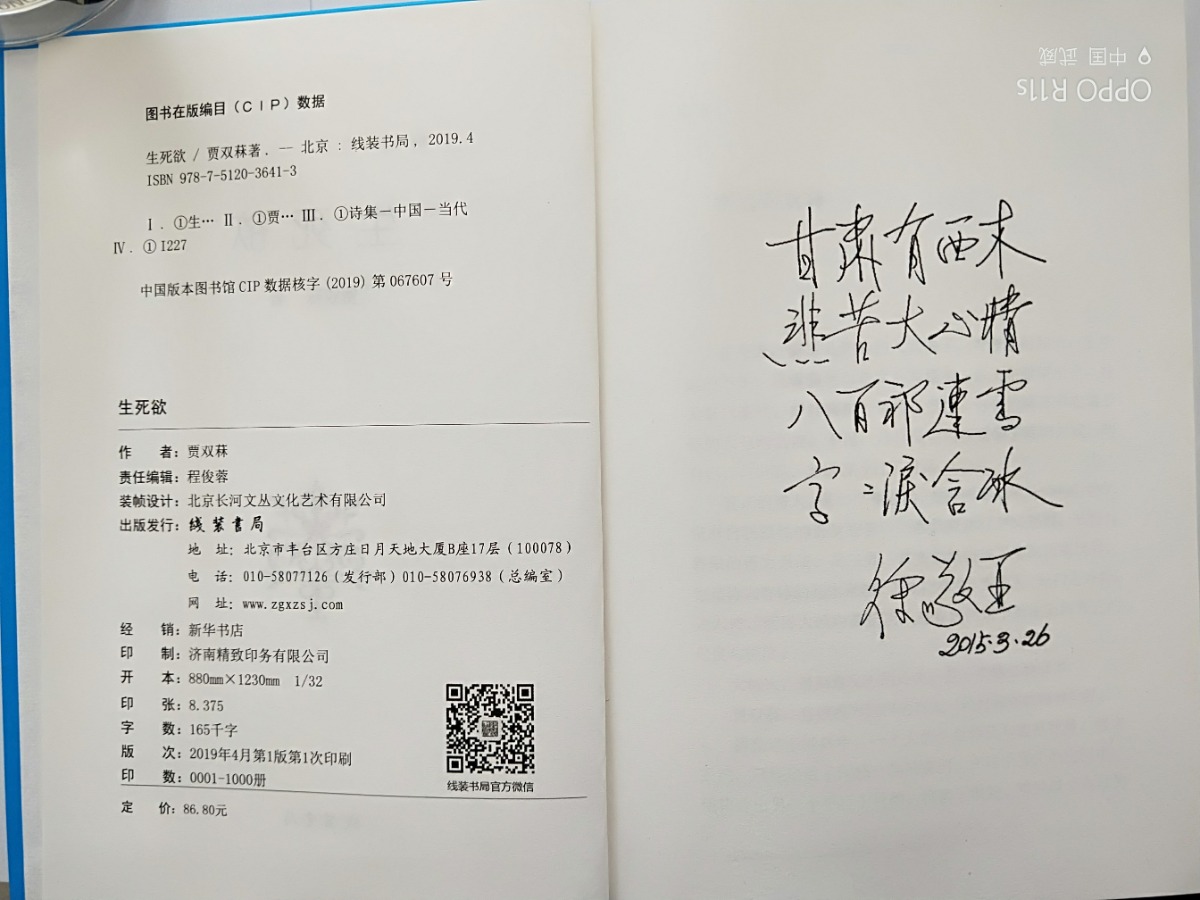 图书在版编目（CIP）数据
生死欲 / 贾双菻著. — 北京 : 线装书局, 2019.4
ISBN 978-7-5120-3641-3
Ⅰ. ①生… Ⅱ. ①贾… Ⅲ. ①诗集－中国－当代
Ⅳ. ①I227
中国版本图书馆CIP数据核字(2019)第067607号
生死欲
作 者：贾双菻
责任编辑：程俊蓉
装帧设计：北京长河文丛文化艺术有限公司
出版发行：线装書局
地 址：北京市丰台区方庄日月天地大厦B座17层（100078）
电 话：010-58077126（发行部）010-58076938（总编室）
网 址：www.zgxzsj.com
经 销：新华书店
印 制：济南精致印务有限公司
开 本：880mm×1230mm 1/32
印 张：8.375
字 数：165千字
版 次：2019年4月第1版第1次印刷
印 数：0001-1000册
定 价：86.80元
线装书局官方微信
甘肃有西木
悲苦大心情
八百祁連雪
字：淚含冰
徐敬亚
2015.3.26
OPPO R11s
中国 武威